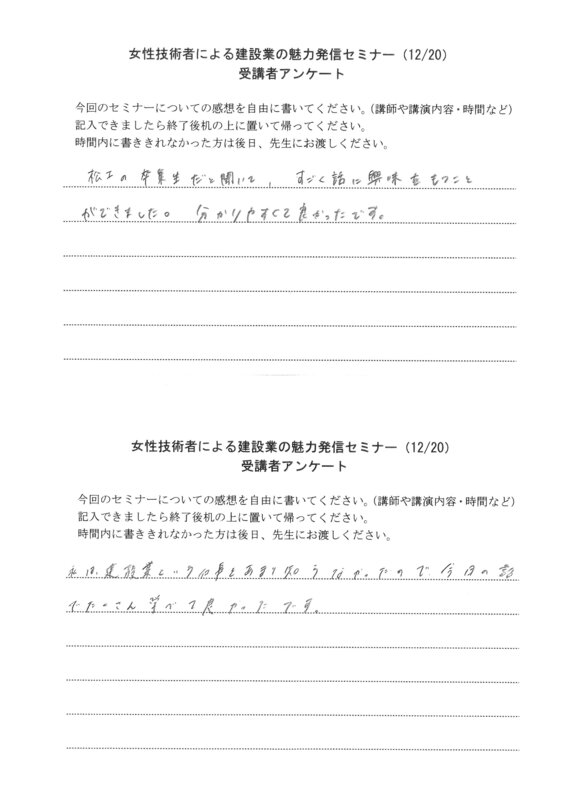 女性技術者による建設業の魅力発信セミナー（12/20）
受講者アンケート
今回のセミナーについての感想を自由に書いてください。（講師や講演内容・時間など）
記入できましたら終了後机の上に置いて帰ってください。
時間内に書ききれなかった方は後日、先生にお渡しください。
松工の卒業生だと聞いて、すごく話に興味をもつこと
ができました。分かりやすくて良かったです。
女性技術者による建設業の魅力発信セミナー（12/20）
受講者アンケート
今回のセミナーについての感想を自由に書いてください。（講師や講演内容・時間など）
記入できましたら終了後机の上に置いて帰ってください。
時間内に書ききれなかった方は後日、先生にお渡しください。
私は建設業という仕事をあまり知らなかったので今日の話
でたくさん学べて良かったです。